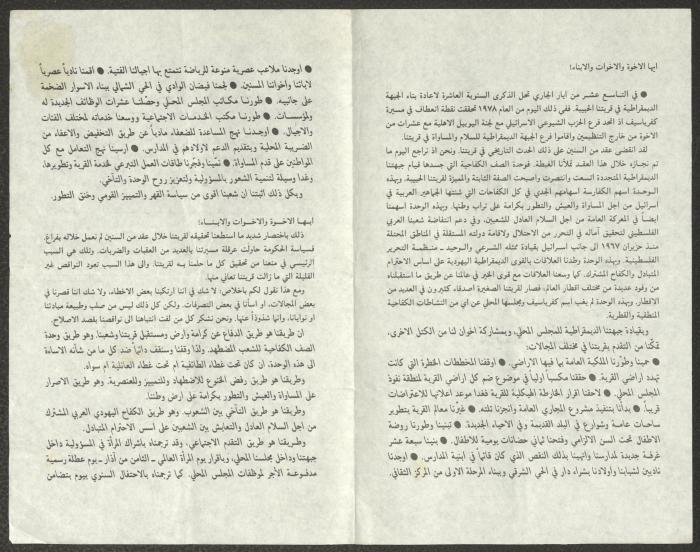 ايها الاخوة والاخوات والابناء!
● في التاسع عشر من ايار الجاري تحل الذكرى السنوية العاشرة لاعادة بناء الجبهة
الديمقراطية في قريتنا الحبيبة. ففي ذلك اليوم من العام ١٩٧٨ تحققت نقطة انعطاف في مسيرة
كفرياسيف اذ اتحد فرع الحزب الشيوعي الاسرائيلي مع لجنة اليوبيل الاهلية مع عشرات من
الاخوة من خارج التنظيمين واقاموا فرع الجبهة الديمقراطية للسلام والمساواة في قريتنا.
لقد انقضى عقد من السنين على ذلك الحدث التاريخي في قريتنا. ونحن اذ نراجع اليوم ما
تم انجازه خلال هذا العقد تملأنا الغبطة. فوحدة الصف الكفاحية التي جسدها قيام جبهتنا
الديمقراطية المتجددة اتسعت وانتصرت واصبحت الصفة الثابتة والمميزة لقريتنا الحبيبة. وبهذه
الوحدة اسهم الكفارسة اسهامهم الجدي في كل الكفاحات التي شنتها الجماهير العربية في
اسرائيل من اجل المساواة والعيش والتطور بكرامة على تراب وطنها. وبهذه الوحدة اسهمنا
ايضاً في المعركة العامة من اجل السلام العادل للشعبين، وفي دعم انتفاضة شعبنا العربي
الفلسطيني لتحقيق آماله في التحرر من الاحتلال ولاقامة دولته المستقلة في المناطق المحتلة
منذ حزيران ١٩٦٧ الى جانب اسرائيل بقيادة ممثله الشرعي والوحيد ـ منظمة التحرير
الفلسطينية. وبهذه الوحدة وطدنا العلاقات بالقوى الديمقراطية اليهودية على اساس الاحترام
المتبادل والكفاح المشترك. كما وسعنا العلاقات مع قوى الخير في عالمنا عن طريق ما استقبلناه
من وفود عديدة من مختلف اقطار العالم، فصار لقريتنا الصغيرة اصدقاء كثيرون في العديد من
الاقطار. وبهذه الوحدة لم يغب اسم كفرياسيف ومجلسها المحلي عن اي من النشاطات الكفاحية
المنطقية والقطرية.
وبقيادة جبهتنا الديمقراطية للمجلس المحلي، وبمشاركة اخوان لنا من الكتل الاخرى،
تمكّنا من التقدم بقريتنا في مختلف المجالات:
● حمينا وطوّرنا الملكية العامة بما فيها الاراضي. ● اوقفنا المخططات الخطرة التي كانت
تهدد اراضي القرية. ● حققنا مكسباً اولياً في موضوع ضم كل اراضي القرية لمنطقة نفوذ
المجلس المحلي. ● لاحقنا اقرار الخارطة الهيكلية للقرية فغدا موعد اعلانها للاعتراضات
قريباً. ● بدأنا بتنفيذ مشروع المجاري العامة وانجزنا ثلثه. ● غيّرنا معالم القرية بتطوير
ساحات عامة وشوارع في البلد القديمة وفي الاحياء الجديدة. ● تبنينا وطورنا روضة
الاطفال تحت السن الالزامي وفتحنا ثماني حضانات يومية للاطفال. ● بنينا سبعة عشر
غرفة جديدة لمدارسنا وانهينا بذلك النقص الذي كان قائماً في ابنية المدارس. ● اوجدنا
ناديين لشبابنا واولادنا بشراء دار في الحي الشرقي وببناء المرحلة الاولى من المركز الثقافي.
● اوجدنا ملاعب عصرية منوعة للرياضة تتمتع بها اجيالنا الفتية. ● اقمنا نادياً عصرياً
لابائنا وأخواتنا المسنين. ● لجمنا فيضان الوادي في الحي الشمالي ببناء الاسوار الضخمة
على جانبيه. ● طورنا مكاتب المجلس المحلي وحصّلنا عشرات الوظائف الجديدة له
ولمؤسساته. ● وطورنا مكتب الخدمات الاجتماعية ووسعنا خدماته لمختلف الفئات
والاجيال. ● اوجدنا نهج المساعدة للضعفاء مادياً عن طريق التخفيض والاعفاء من
الضريبة المحلية وبتقديم الدعم لاولادهم في المدارس. ● ارسينا نهج التعامل مع كل
المواطنين على قدم المساواة. ● نمّينا وفجّرنا طاقات العمل التبرعي لخدمة القرية وتطويرها،
وغدا وسيلة لتنمية الشعور بالمسؤولية ولتعزيز روح الوحدة والتآخي.
وبكل ذلك اثبتنا ان شعبنا اقوى من سياسة القهر والتمييز القومي وخنق التطور.
ايها الاخوة والاخوات والابناء!
ذلك باختصار شديد ما استطعنا تحقيقه لقريتنا خلال عقد من السنين لم نعمل خلاله بفراغ.
فسياسة الحكومة حاولت عرقلة مسيرتنا بالعديد من العقبات والضربات. وتلك هي السبب
الرئيسي في منعنا من تحقيق كل ما حلمنا به لقريتنا. والى هذا السبب تعود النواقص غير
القليلة التي ما زالت قريتنا تعاني منها.
ومع هذا نقول لكم باخلاص: لا شك في اننا ارتكبنا بعض الاخطاء، ولا شك اننا قصرنا في
بعض المجالات، او اسأنا في بعض التصرفات. ولكن كل ذلك ليس من صلب وطبيعة مبادئنا
او نوايانا، وانما شذوذاً عنها. ونحن نشكر كل من لفت انتباهنا الى نواقصنا بقصد الاصلاح.
ان طريقنا هو طريق الدفاع عن كرامة وارض ومستقبل قريتنا وشعبنا. وهو طريق وحدة
الصف الكفاحية للشعب المضطهد. ولذا وقفنا وسنقف دائماً ضد كل ما من شأنه الاساءة
الى هذه الوحدة، ان كان تحت غطاء الطائفية ام تحت غطاء العائلية ام سواه.
وطريقنا هو طريق رفض الخنوع للاضطهاد وللتمييز وللعنصرية. وهو طريق الاصرار
على المساواة والعيش والتطور بكرامة على ارض وطننا.
وطريقنا هو طريق التآخي بين الشعوب. وهو طريق الكفاح اليهودي العربي المشترك
من اجل السلام العادل والتعايش بين الشعبين على اسس الاحترام المتبادل.
وطريقنا هو طريق التقدم الاجتماعي. وقد ترجمناه باشراك المرأة في المسؤولية داخل
جبهتنا وداخل مجلسنا المحلي، وباقرار يوم المرأة العالمي ـ الثامن من آذار ـ يوم عطلة رسمية
مدفوعة الأجر لموظفات المجلس المحلي. كما ترجمناه بالاحتفال السنوي بيوم يتضامن